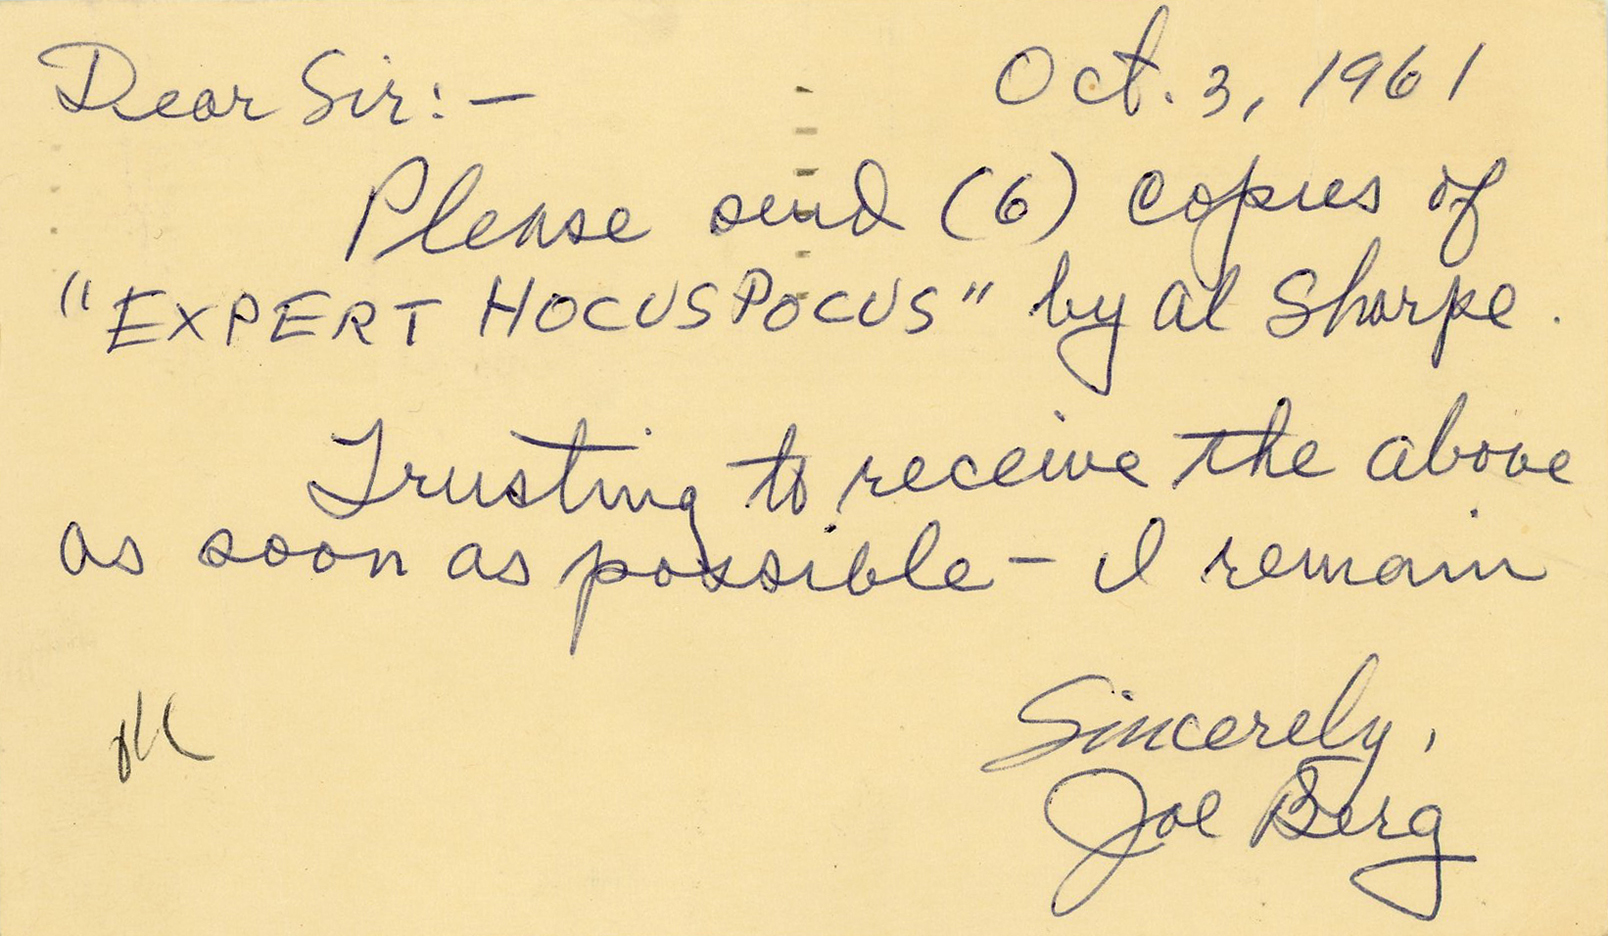 Dear Sir:— Oct. 3, 1961
Please send (6) copies of
"EXPERT HOCUS POCUS" by Al Sharpe.
Trusting to receive the above
as soon as possible — I remain
Sincerely,
Joe Berg